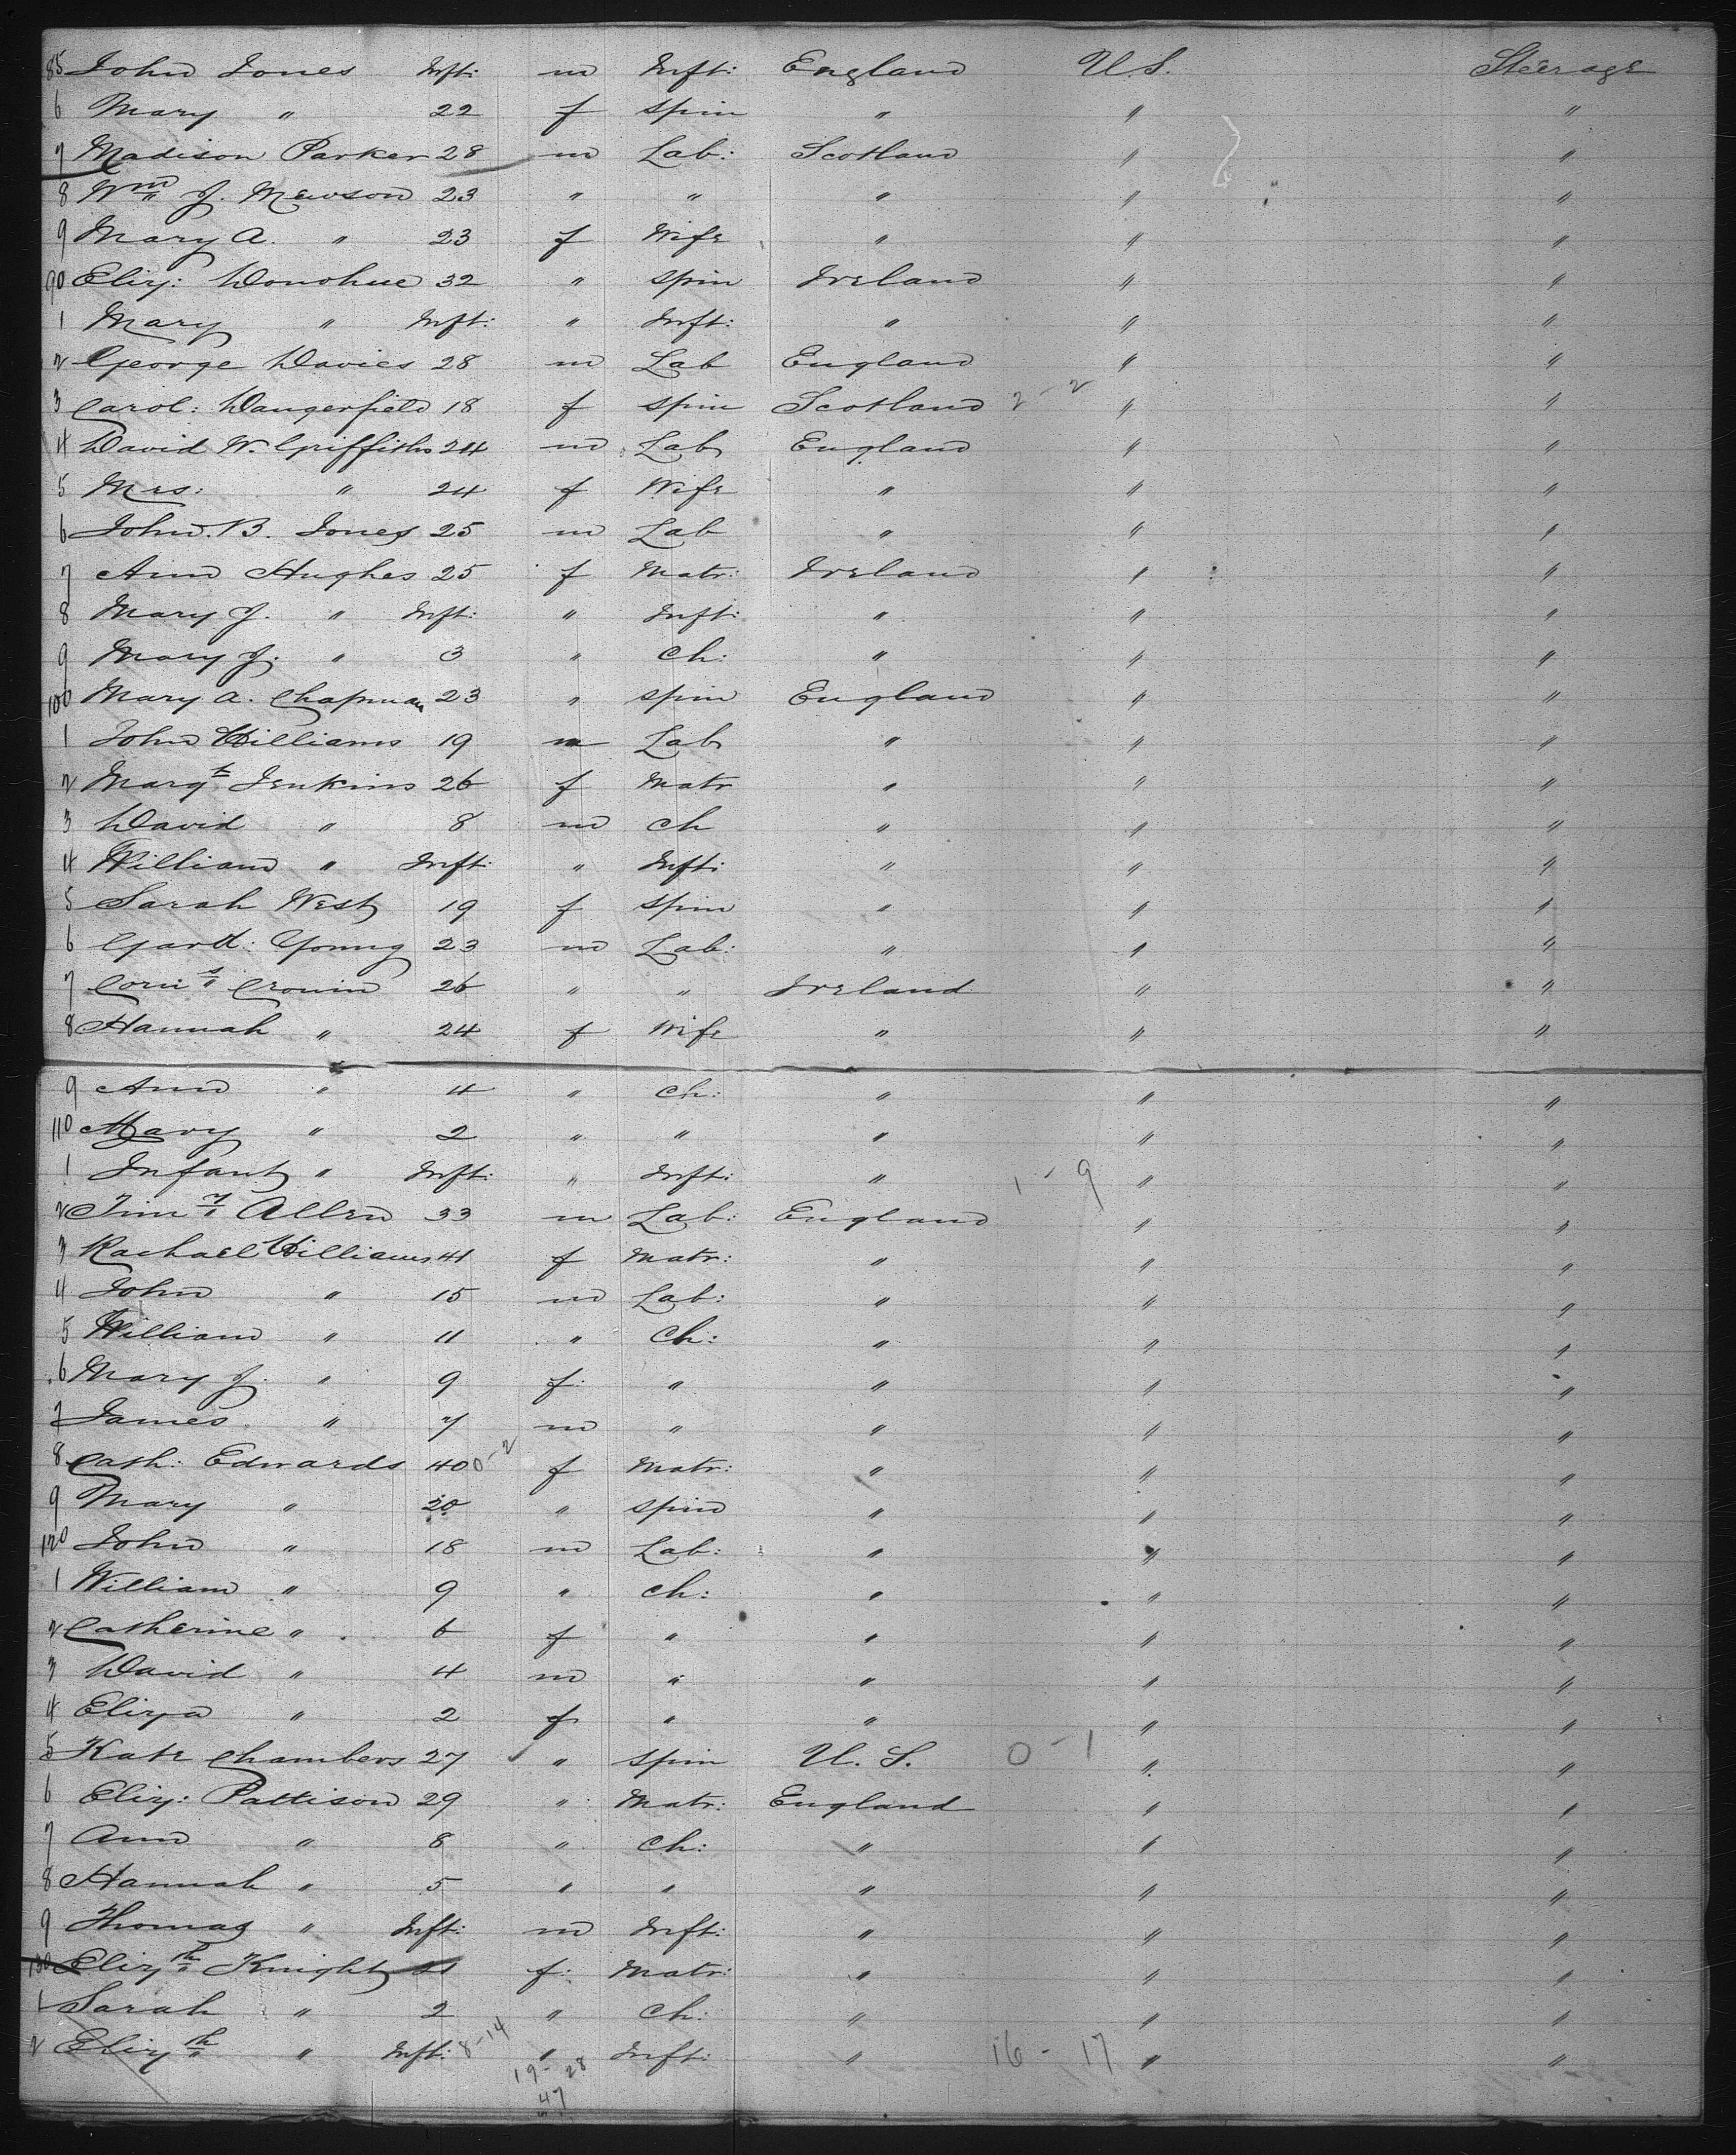 85 John Jones Inft: m Inft: England U.S. Steerage
6 Mary " 22 f Spin " " "
7 Madison Parker 28 m Lab: Scotland " "
8 Wm J. Mewson 23 " " " " "
9 Mary A. " 23 f Wife " " "
90 Eliz: Donohue 32 " Spin Ireland " "
1 Mary " Inft: " Inft: " " "
2 George Davies 28 m Lab England " "
3 Carol: Dangerfield 18 f Spin Scotland 2-2 " "
4 David W. Griffiths 24 m Lab England " "
5 Mrs: " 24 f Wife " " "
6 John. B. Jones 25 m Lab " " "
7 Ann Hughes 25 f Matr: Ireland " "
8 Mary J. " Inft: " Inft: " " "
9 Mary J. " 3 " Ch: " " "
100 Mary A. Chapman 23 " Spin England " "
1 John Williams 19 m Lab " " "
2 Margt Jenkins 26 f Matr " " "
3 David " 8 m Ch " " "
4 William " Inft: " Inft: " " "
5 Sarah West 19 f Spin " " "
6 Young 23 m Lab: " " "
7 Corns Cronin 26 " " Ireland " "
8 Hannah " 24 f Wife " " "
9 Ann " 4 " Ch: " " "
110 Mary " 2 " " " " "
1 Infant " Inft: " Inft: " 1-9 " "
2 Timy Allen 33 m Lab: England " "
3 Rachael Williams 41 f Matr: " " "
4 John " 15 m Lab: " " "
5 William " 11 " Ch: " " "
6 Mary J. " 9 f " " " "
7 James " 7 m " " " "
8 Cath: Edwards 40 0-2 f Matr: " " "
9 Mary " 20 " Spin " " "
120 John " 18 m Lab: " " "
1 William " 9 " Ch: " " "
2 Catherine " 6 f " " " "
3 David " 4 m " " " "
4 Eliza " 2 f " " " "
5 Kate Chambers 27 " Spin U.S. 0-1 " "
6 Eliz: Pattison 29 " Matr: England " "
7 Ann " 8 " Ch: " " "
8 Hannah " 5 " " " " "
9 Thomas " Inft: m Inft: " " "
130 Elizth Knight f: Matr: " " "
1 Sarah " 2 " Ch: " " "
2 Elizth " Inft: 8-14 " Inft: " 16-17 " "
19-28
47